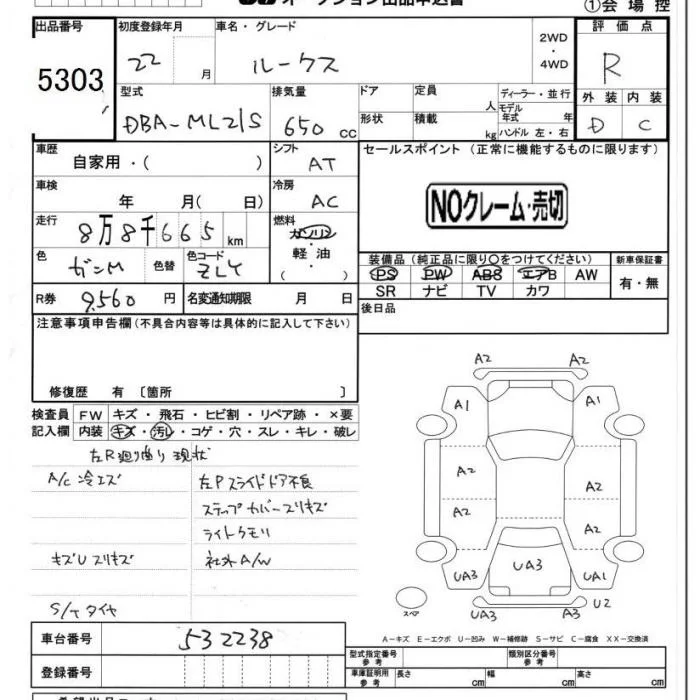 オークション出品申込書
①会場控
出品番号 5303
初度登録年月 22 月
車名・グレード ルークス
2WD・4WD
評価点 R
型式 DBA-ML21S
排気量 650 cc
ドア
定員 人
ディーラー・並行
モデル年式 年
形状
積載 kg
ハンドル 左・右
外装 内装
D C
車歴 自家用・( )
シフト AT
セールスポイント(正常に機能するものに限ります)
車検 年 月( 日)
冷房 AC
NOクレーム・売切
走行 8万8千665km
燃料 ガソリン
軽油
( ・ )
色 ガンM 色替
色コード ZLY
装備品(純正品に限り○をつけてください)
新車保証書
PS PW ABS エアB AW
有・無
SR ナビ TV カワ
R券 9,560 円
名変通知期限 月 日
後日品
注意事項申告欄(不具合内容等は具体的に記入して下さい)
修復歴 有 〔箇所 〕
検査員 FW キズ・飛石・ヒビ割・リペア跡・×要
記入欄 内装 キズ・汚れ・コゲ・穴・スレ・キレ・破レ
左R廻り曲り 現状
A/C 冷エズ 左Pスライドドア不良
ステップカバースリキズ
ライトクモリ
キズU スリキズ 社外A/W
S/Tタイヤ
A2 A2
A1 A1
A2 A2
A2 A2
UA3 UA3 UA1
スペア UA3 A3 U2
A-キズ E-エクボ U-凹み W-補修跡 S-サビ C-腐食 XX-交換済
車台番号 532238
型式指定番号 参考
類別区分番号 参考
登録番号
車庫証明用 参考 長さ cm 幅 cm 高さ cm